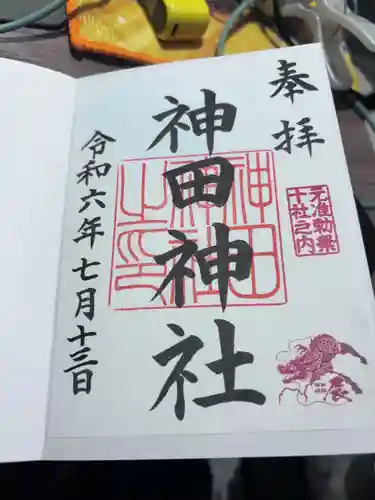 奉拝
元准勅祭
十社之内
辰
神田神社
神田
神社
之印
令和六年七月十三日